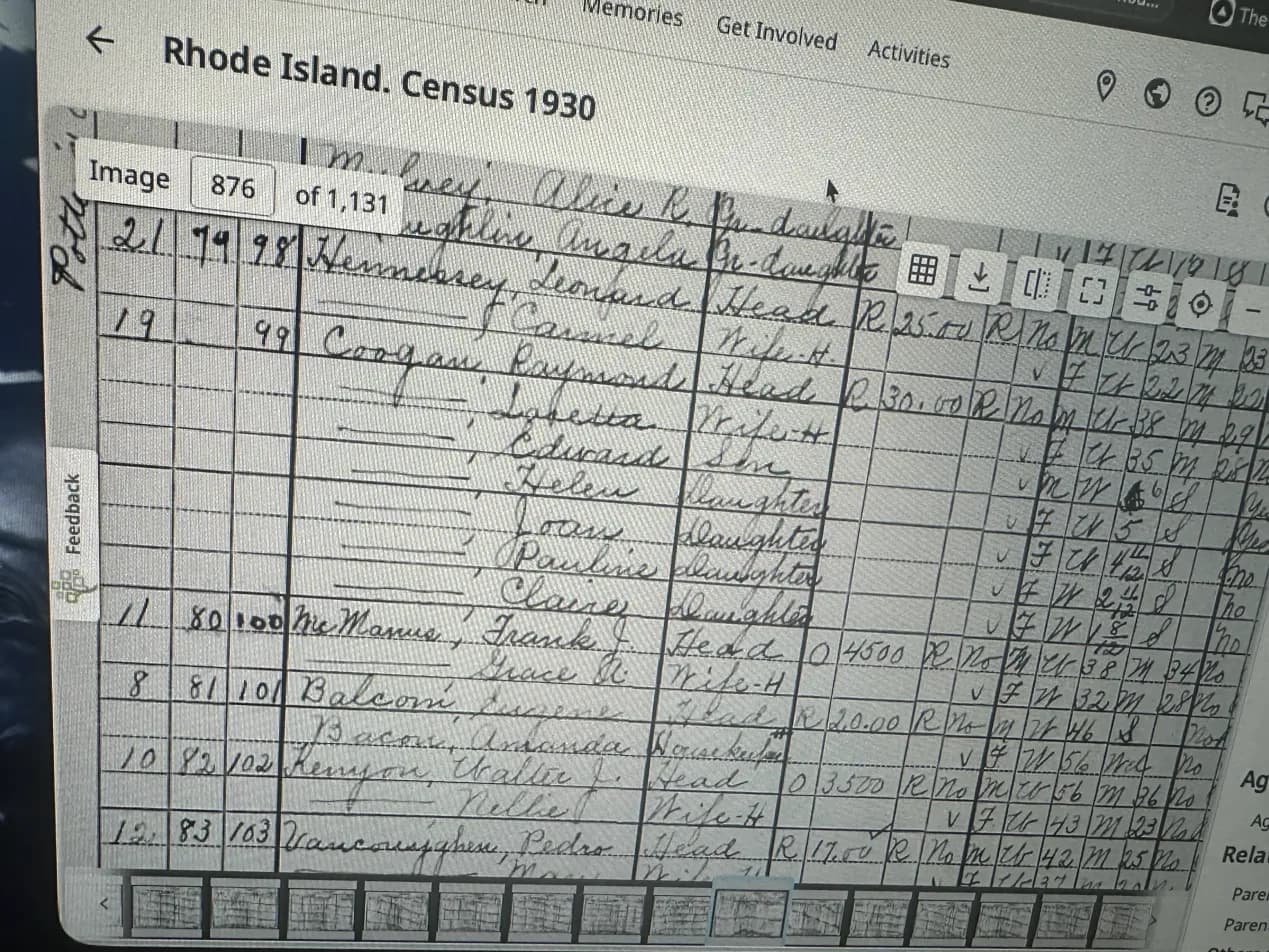 Memories Get Involved Activities The
← Rhode Island. Census 1930
Image 876 of 1,131
Alice R. Gr-daughte
Angela Gr-daughte
21 79 98 Hennessey, Leonard Head R 25.00 R No M W 23 M 23
——, Carmel Wife-H √ F W 22 M 22
19 99 Coogan, Raymond Head R 30.00 R No M W 38 M 29
——, Wife-H √ F W 35 M 28
——, Edward Son √ M W 6 S
——, Helen Daughter √ F W 5 S
——, Joan Daughter √ F W 4 S no
——, Pauline Daughter √ F W 2 S no
——, Claire Daughter √ F W 1 8/12 S no
11 80 100 McManus, Frank J. Head O 4500 R No M W 38 M 34 No
—— Grace Wife-H √ F W 32 M 28 No
8 81 101 Balcom, Eugene Head R 20.00 R No M W 46 S
Bacon, Amanda Housekeeper √ F W 56 Wd no
10 82 102 Kenyon, Walter J. Head O 3500 R No M W 56 M 36 No
—— Nellie Wife-H √ F W 43 M 23
12 83 103 Pedro Head R 17.00 R No M W 42 M 25 No
Feedback
Ag
Ag
Rela
Pare
Paren